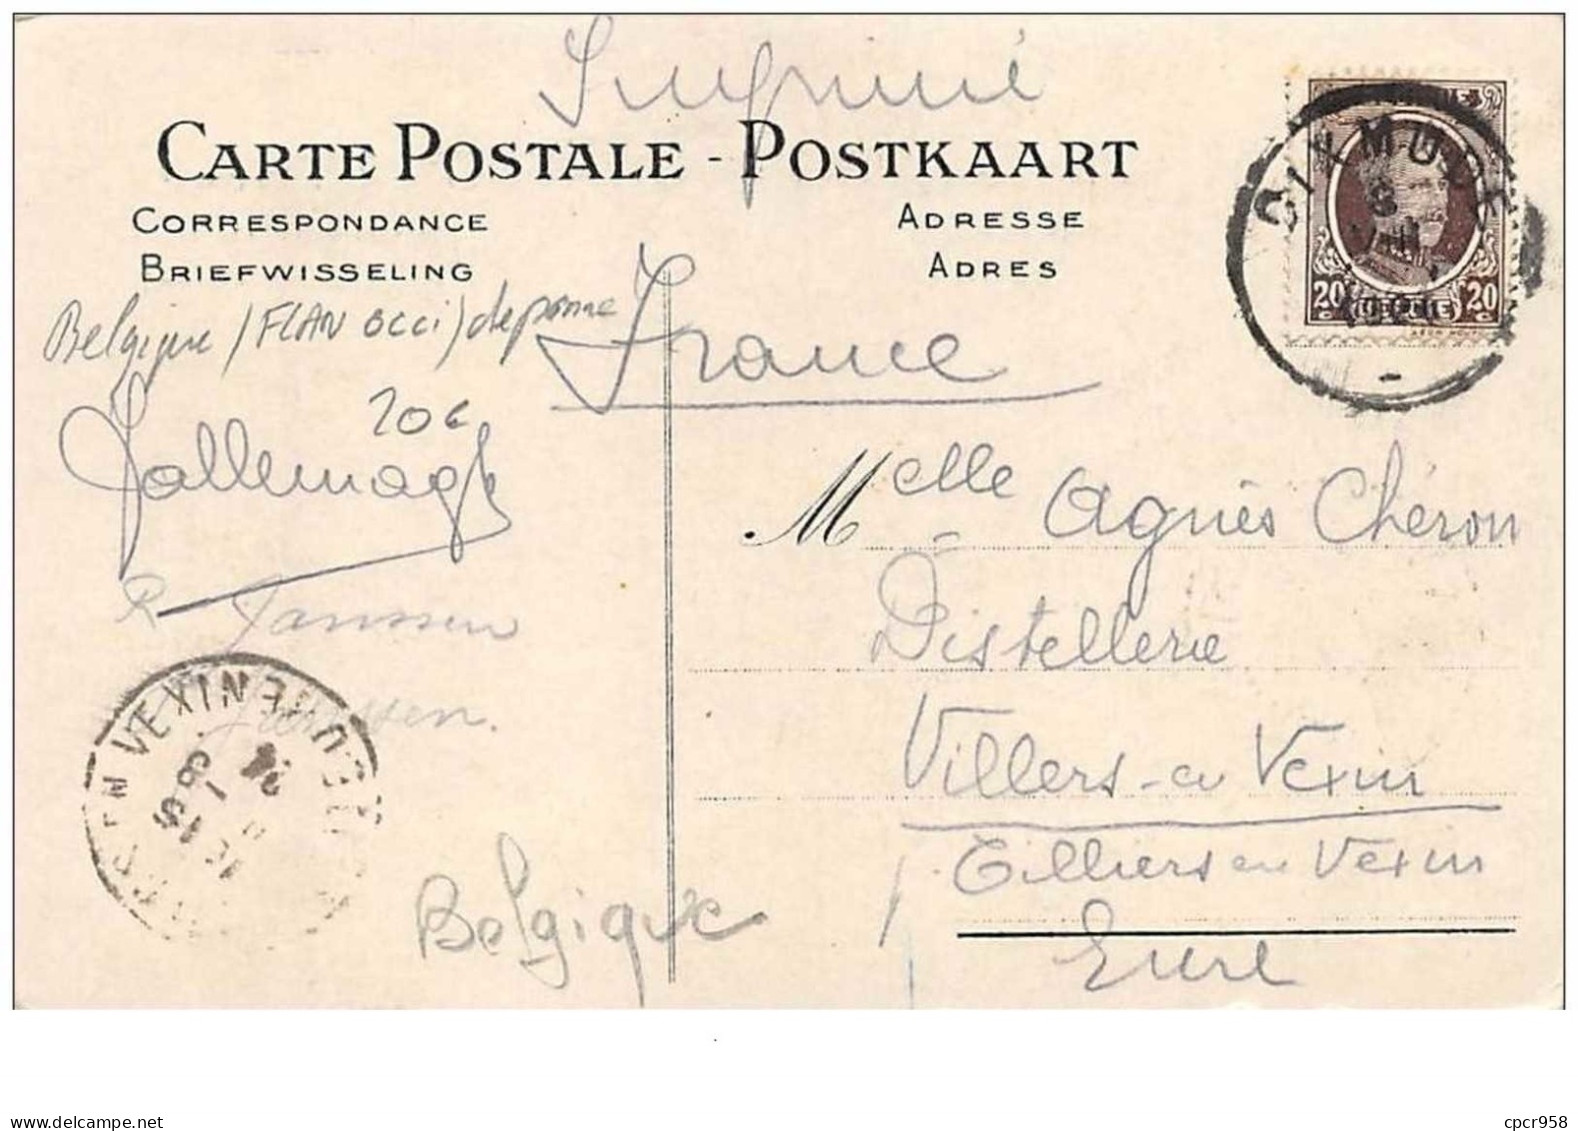 Imprimé
CARTE POSTALE - POSTKAART
CORRESPONDANCE
BRIEFWISSELING
ADRESSE
ADRES
DIXMUDE
8
VIII
20 20
Belgique / (FLAN OCCI)
20c
France
Lallemagh
Melle Agnès Chéron
Distellerie
Villers-en Vexin
Tilliers en Vexin
Eure
R Janssen
EN VEXIN EURE
15
8
24
Belgique
www.delcampe.net
cpcr958